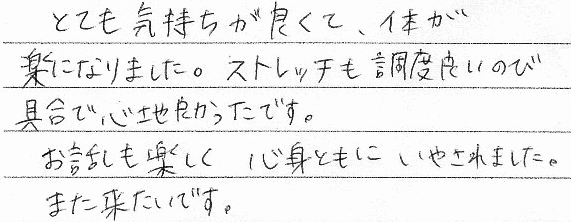 とても気持ちが良くて、体が
楽になりました。ストレッチも調度良いのび
具合で心地良かったです。
お話しも楽しく 心身ともに いやされました。
また来たいです。